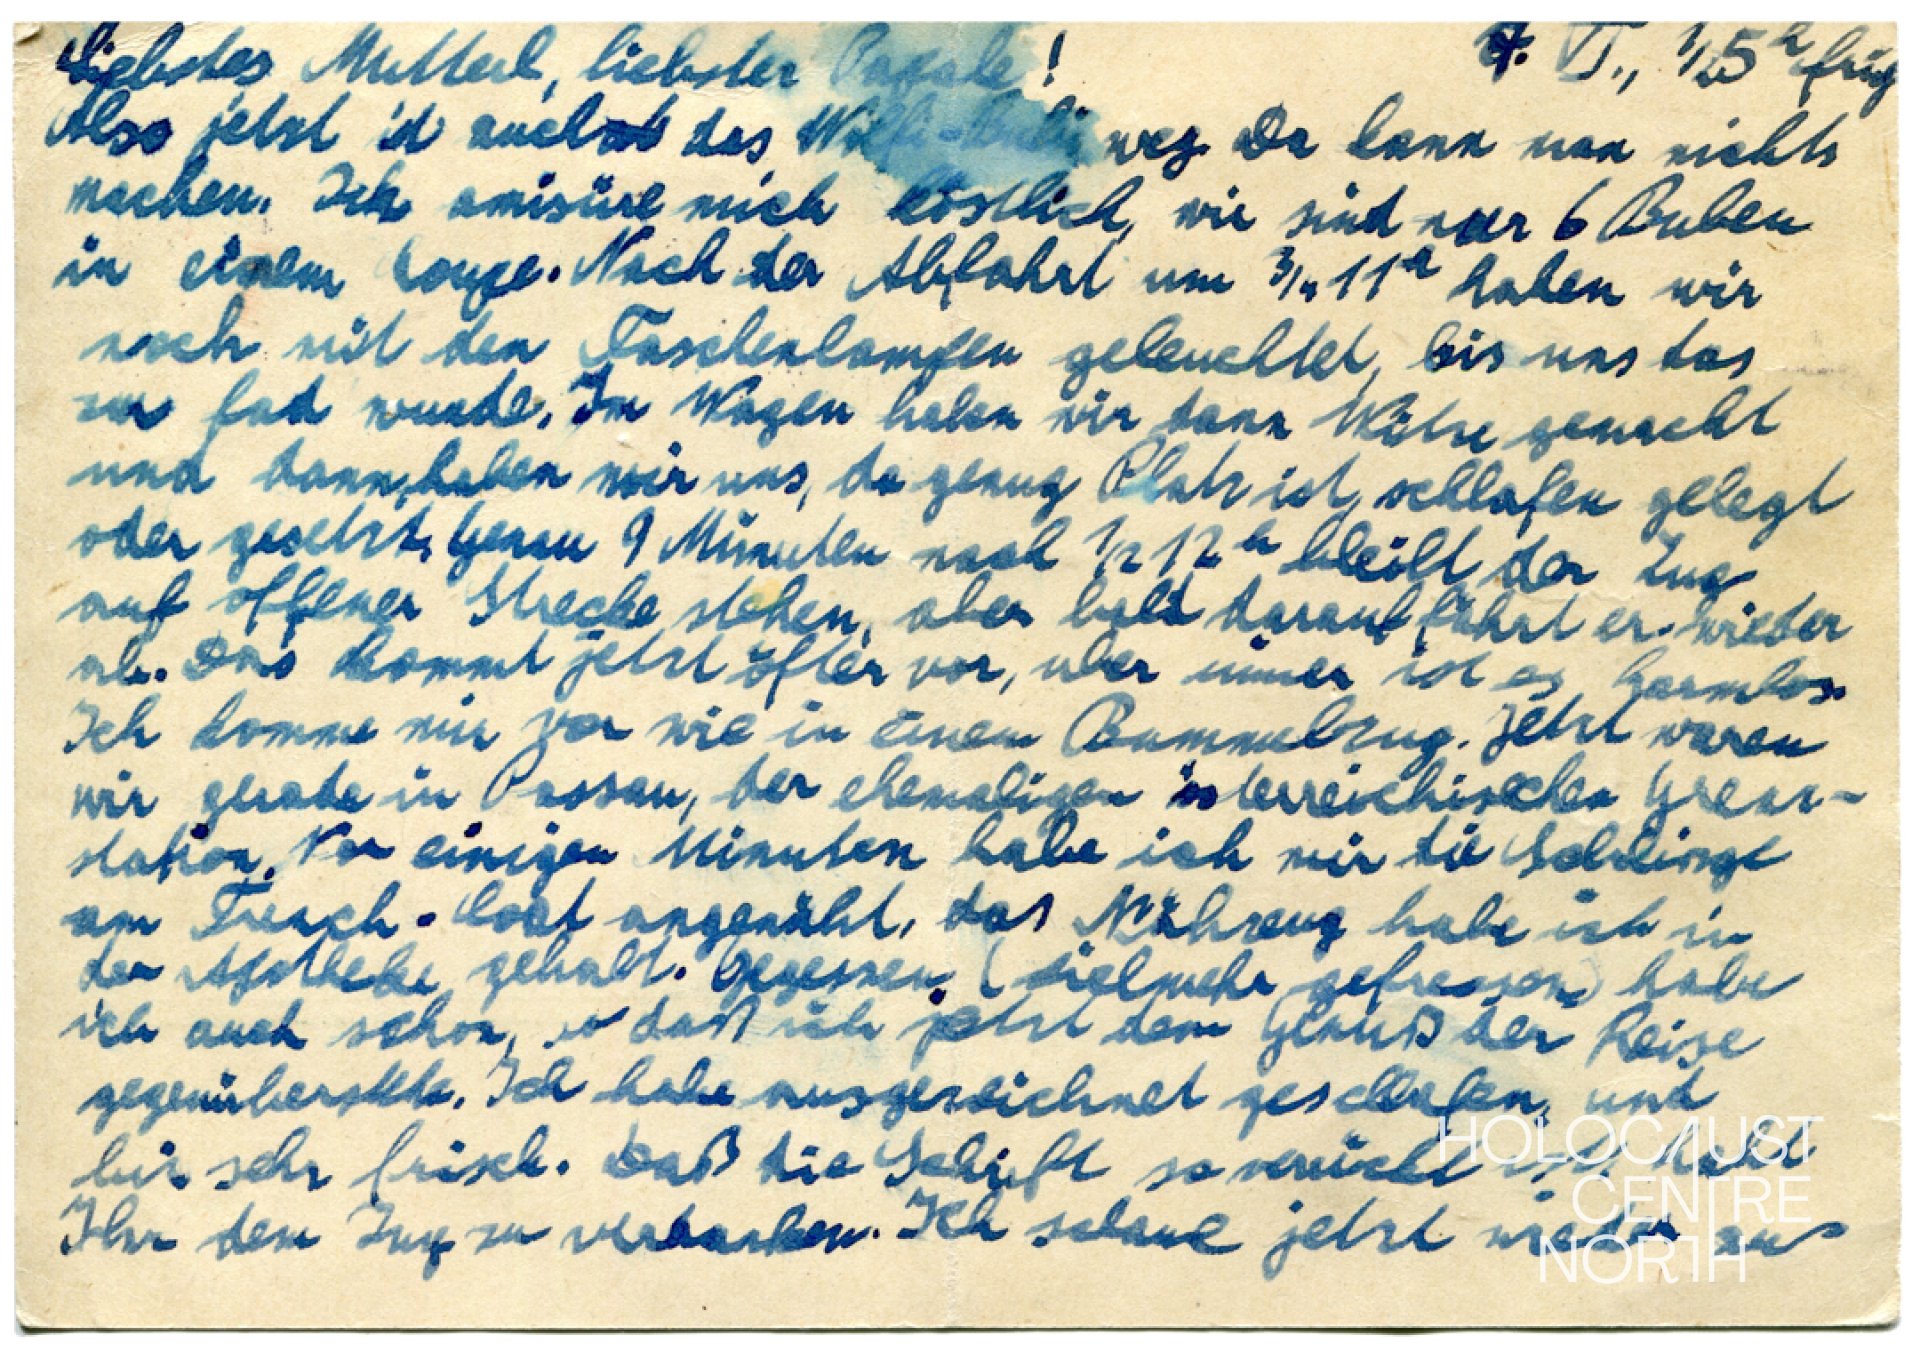 Liebstes Mutterl, liebster Papale! 7. VI., 1/2 5 h früh
Also jetzt is auch das weg. Da kann man nichts
machen. Ich amisüre mich köstlich, wir sind nur 6 Buben
in einem Coupe. Nach der Abfahrt um 3/4 11 h haben wir
noch mit den Taschenlampen geleuchtet, bis uns das
zu fad wurde. Im Wagen haben wir dann Witze gemacht
und dann, haben wir uns, da genug Platz ist, schlafen gelegt
oder gesetzt. Genau 9 Minuten nach 1/2 12 h bleibt der Zug
auf offener Strecke stehen, aber bald darauf fährt er wieder
ab. Das kommt jetzt öfter vor, aber immer ist es harmlos.
Ich komme mir vor wie in einem Bummelzug. Jetzt waren
wir gerade in Passau, der ehemaligen österreichischen Grenz-
station. Vor einigen Minuten habe ich mir die Schlinge
am Trench-Coat angenäht, das Nähzeug habe ich in
der Apotheke gehabt. Gegessen (vielmehr gefressen) habe
ich auch schon, so daß ich jetzt dem Genuß der Reise
gegenüberstehe. Ich habe ausgezeichnet geschlafen, und
bin sehr frisch. Daß die Schrift so verrückt ist, habt
Ihr dem Zug zu verdanken. Ich schaue jetzt wieder zum
HOLOCAUST
CENTRE
NORTH